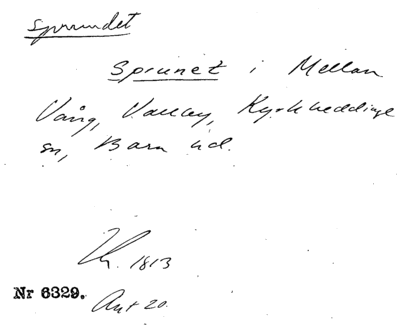 sprundet
Sprunet i Mellan
Vång, Vallby, Kyrkheddinge
sn, Bara hd.
1813
Nr 6329.
Akt 20.